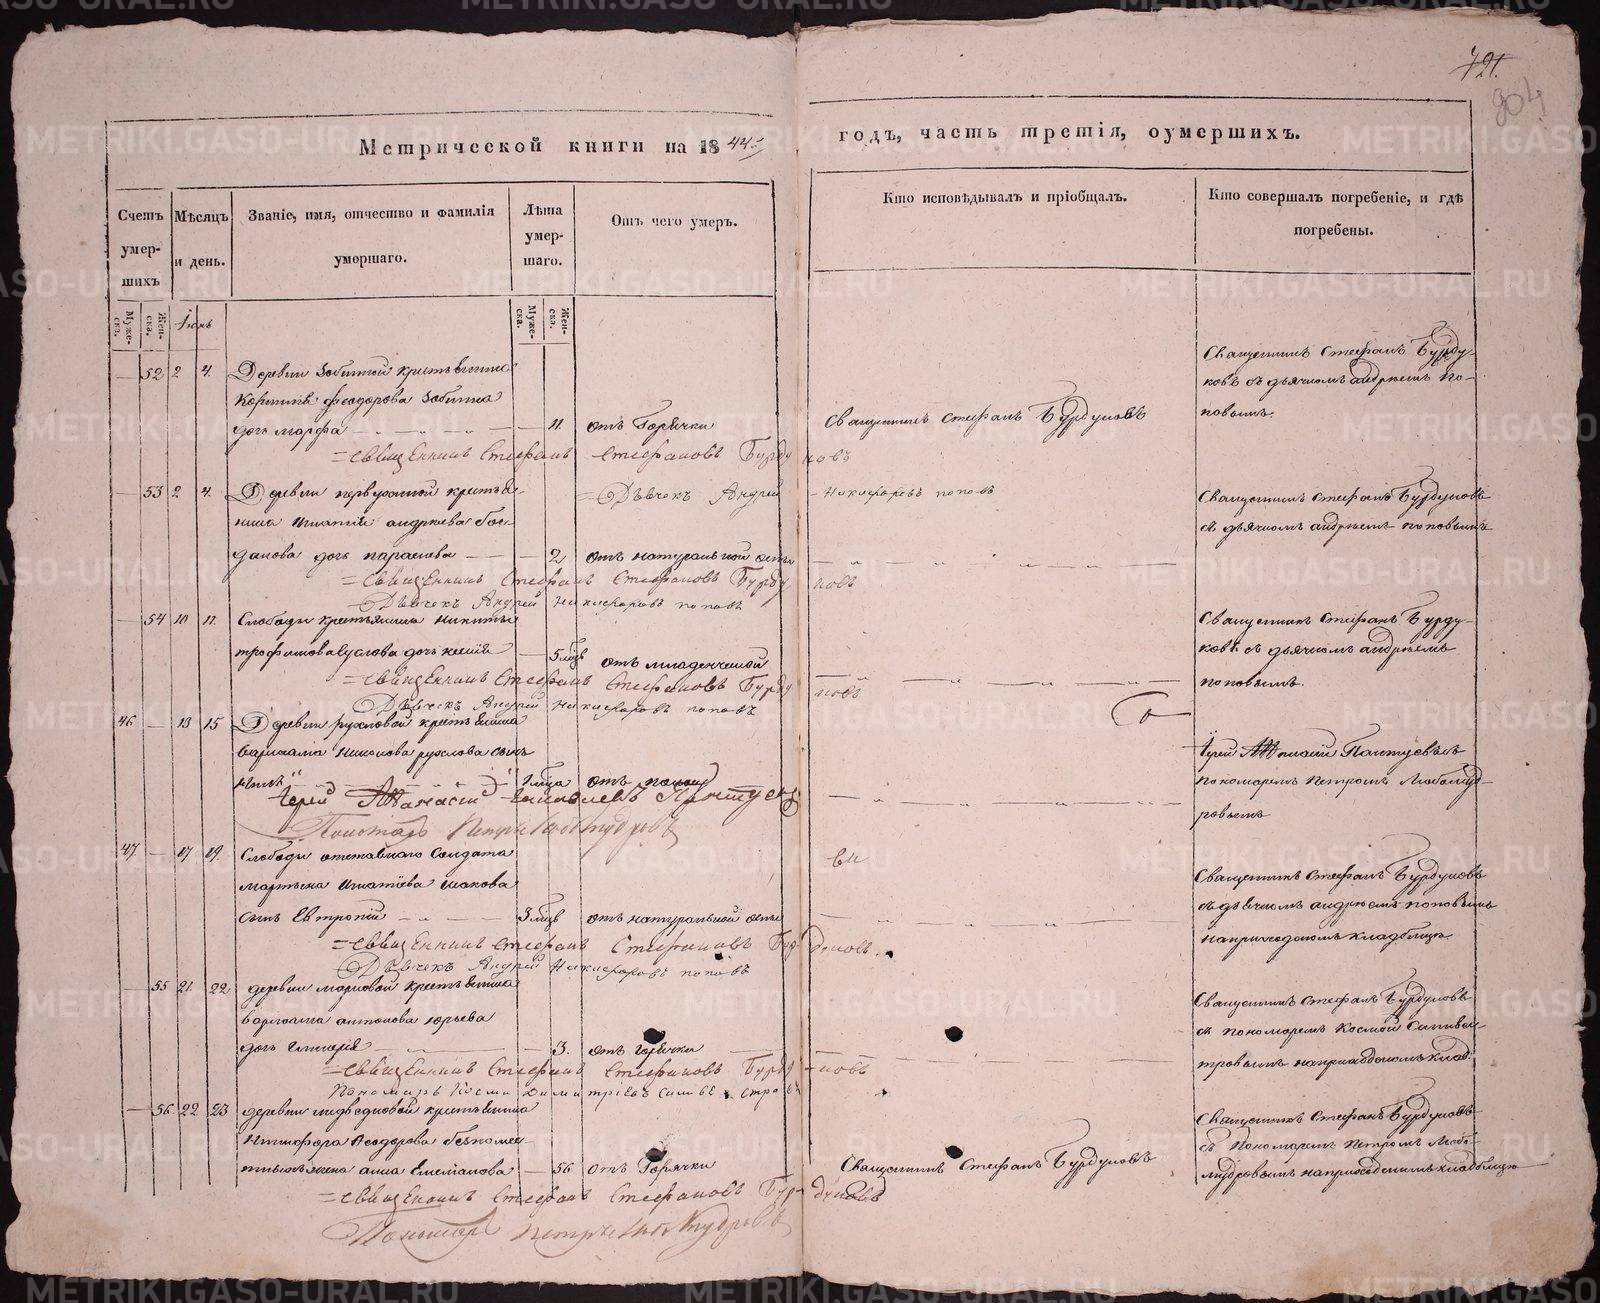 421.
904
Метрической книги на 1844
годъ, часть третія, оумершихъ.
Счетъ умер-шихъ
Мѣсяцъ и день.
Званіе, имя, отчество и фамилія умершаго.
Лѣта умер-шаго.
Отъ чего умеръ.
Кто исповѣдывалъ и пріобщалъ.
Кто совершалъ погребеніе, и гдѣ погребены.
Муже-ска.
Жен-ска.
Іюнь
Муже-ска.
Жен-ска.
52 2 4.
Деревни Зобниной крестьянина
Феодорова Зобнина
дочь марфа 11. отъ Горячки
Священникъ Стефанъ Бурдуковъ
Священникъ Стефанъ Бурду-
ковъ съ дьячкомъ андреемъ по-
повымъ.
=Священникъ Стефанъ Стефановъ Бурдуковъ
=Дьячекъ Андрей Никифоровъ поповъ
53 2. 4.
Деревни крестья-
нина Игнатія андреева бог-
данова дочь парасковья 2 отъ натуральной оспы
Священникъ Стефанъ Бурдуковъ
съ дьячкомъ андреемъ поповымъ
=Священникъ Стефанъ Стефановъ Бурдуковъ
Дьячекъ Андрей Никифоровъ поповъ
54 10 11.
Слободы крестьянина Никиты
трофимова дочь 5 мцъ отъ младенческой
Священникъ Стефанъ Бурду-
ковъ съ дьячкомъ андреемъ
поповымъ.
=Священникъ Стефанъ Стефановъ Бурдуковъ
Дьячекъ Андрей Никифоровъ поповъ
46 13 15
Деревни рухловой крестьянина
варлаама Никонова рухлова сынъ
отъ поносу
Іерей Афанасій Пантуевъ съ
пономаремъ Петромъ Любомуд-
ровымъ
Іерей Афанасій Яковлевъ Пантуевъ
Пономарь Петръ Любомудровъ
47 17 19.
Слободы отставнаго Солдата
мартына Игнатіева
сынъ Евтропій 3 мцъ отъ натуральной оспы
Священникъ Стефанъ Бурдуковъ
съ дьячкомъ андреемъ поповымъ
на приходскомъ кладбищѣ.
=Священникъ Стефанъ Стефановъ Бурдуковъ.
Дьячекъ Андрей Никифоровъ поповъ
55 21. 22
деревни крестьянина
варлаама антонова юрьева
дочь 3. отъ Горячки
Священникъ Стефанъ Бурдуковъ
съ пономаремъ Космой Сильвес-
тровымъ на приходскомъ клад:
=Священникъ Стефанъ Стефановъ Бурдуковъ
Пономарь Косма Димитріевъ Сильвестровъ
56. 22 23
деревни медведковой крестьянина
Никифора Феодорова
жена анна Емельянова 56 отъ Горячки
Священникъ Стефанъ Бурдуковъ
Священникъ Стефанъ Бурдуковъ
съ Пономаремъ Петромъ Любо-
мудровымъ на приходскомъ кладбищѣ
=Священникъ Стефанъ Стефановъ Бурдуковъ
Пономарь Петръ Любомудровъ
METRIKI.GASO-URAL.RU